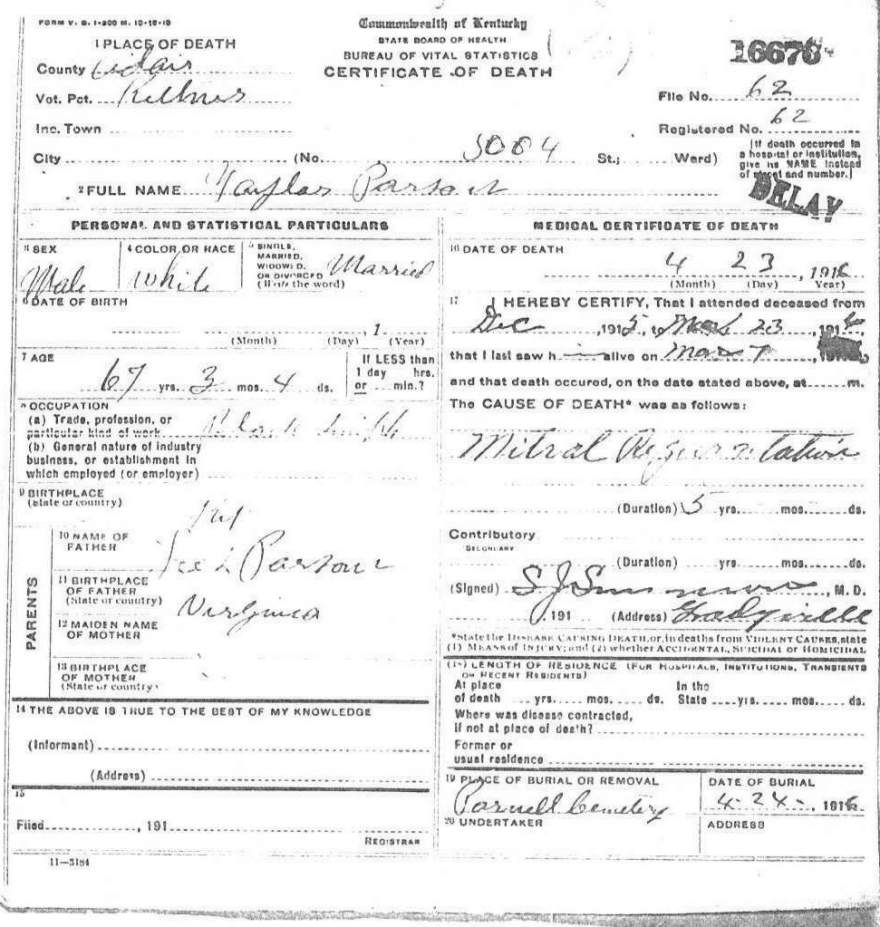 FORM V. S. 1-200 M. 10-18-10
Commonwealth of Kentucky
STATE BOARD OF HEALTH
BUREAU OF VITAL STATISTICS
CERTIFICATE OF DEATH
16676
1 PLACE OF DEATH
County Adair
Vot. Pct. Keltner
Inc. Town
City (No. 5004 St.; Ward)
File No. 62
Registered No. 62
[If death occurred in
a hospital or institution,
give its NAME instead
of street and number.]
2 FULL NAME Taylor Parson
DELAY
PERSONAL AND STATISTICAL PARTICULARS
3 SEX
Male
4 COLOR OR RACE
White
5 SINGLE,
MARRIED,
WIDOWED,
OR DIVORCED
(Write the word)
Married
6 DATE OF BIRTH
, 1
(Month) (Day) (Year)
7 AGE
67 yrs. 3 mos. 4 ds.
If LESS than
1 day hrs.
or min.?
8 OCCUPATION
(a) Trade, profession, or
particular kind of work Black Smith
(b) General nature of industry
business, or establishment in
which employed (or employer)
9 BIRTHPLACE
(State or country)
Ky
PARENTS
10 NAME OF
FATHER
Parson
11 BIRTHPLACE
OF FATHER
(State or country)
Virginia
12 MAIDEN NAME
OF MOTHER
13 BIRTHPLACE
OF MOTHER
(State or country)
14 THE ABOVE IS TRUE TO THE BEST OF MY KNOWLEDGE
(Informant)
(Address)
15
Filed , 191
REGISTRAR
11-3184
MEDICAL CERTIFICATE OF DEATH
16 DATE OF DEATH
4 23 , 1916
(Month) (Day) Year)
17 I HEREBY CERTIFY, That I attended deceased from
Dec , 1915, Mar 23 , 191
that I last saw h alive on Mar 7 ,
and that death occured, on the date stated above, at m.
The CAUSE OF DEATH* was as follows:
Mitral Regurgitation
(Duration) 5 yrs. mos. ds.
Contributory
SECONDARY
(Duration) yrs. mos. ds.
(Signed) S J Simmons , M. D.
, 191 (Address) Gradyville
*State the DISEASE CAUSING DEATH, or, in deaths from VIOLENT CAUSES, state
(1) MEANS OF INJURY; and (2) whether ACCIDENTAL, SUICIDAL or HOMICIDAL
18) LENGTH OF RESIDENCE (FOR HOSPITALS, INSTITUTIONS, TRANSIENTS
OR RECENT RESIDENTS)
At place In the
of death yrs. mos. ds. State yrs. mos. ds.
Where was disease contracted,
If not at place of death?
Former or
usual residence
19 PLACE OF BURIAL OR REMOVAL
Parnell Cemetery
DATE OF BURIAL
4-24-, 1916
20 UNDERTAKER
ADDRESS